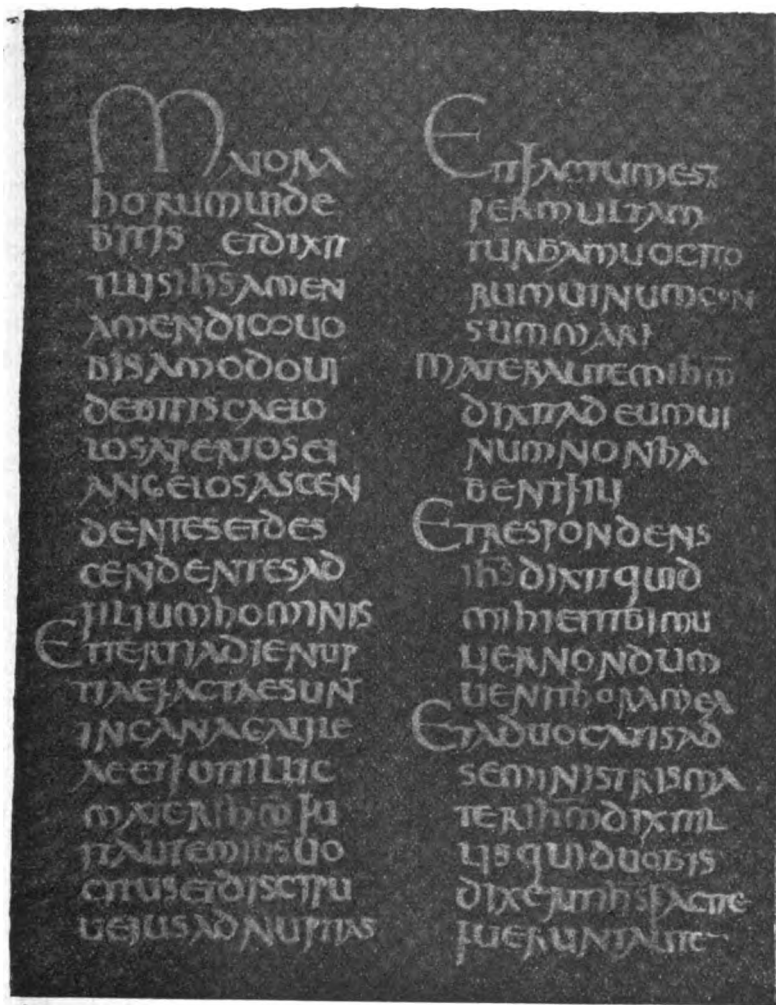 MAIORA
HORUMUIDE
BITIS ETDIXIT
ILLISIH̅S̅AMEN
AMENDICOUO
BISAMODOUI
DEBITISCAELO
LOSAPERTOSET
ANGELOSASCEN
DENTESETDES
CENDENTESAD
FILIUMHOMINIS
ETTERTIADIENUP
TIAEFACTAESUNT
INCANAGALILE
AEETFUITILLIC
MATERIH̅M̅FU
ITAUTEMIH̅S̅UO
CITUSETDISCIPU
LIEIUSADNUPTIAS
ETFACTUMEST
PERMULTAM
TURBAMUOCITO
RUMUINUMCON
SUMMARI
MATERAUTEMIH̅M̅
DIXITADEUMUI
NUMNONHA
BENTFILI
ETRESPONDENS
IH̅S̅DIXITQUID
MIHIETTIBIMU
LIERNONDUM
UENITHORAMEA
ETADUOCATISAD
SEMINISTRISMA
TERIH̅M̅DIXITIL
LISQUIDUOBIS
DIXERITIH̅S̅FACITE
FUERUNTAUTE̅